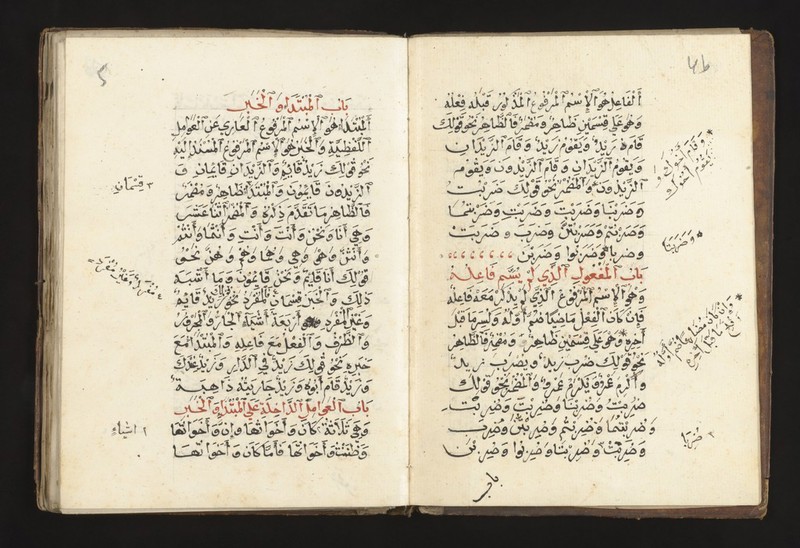 ٤b
الفاعل هو الاسم المرفوع المذكور قبله فعله
وهو على قسمين ظاهر ومضمر فالظاهر نحو قولك
قام زيد ويقوم زيد وقام الزيدان
ويقوم الزيدان وقام الزيدون ويقوم
الزيدون والمضمر نحو قولك ضربت
وضربنا وضربت وضربت وضربتما
وضربتم وضربتن وضرب وضربت
وضربا وضربوا وضربن
باب المفعول الذي لم يسم فاعله
وهو الاسم المرفوع الذي لم يذكر معه فاعله
فإن كان الفعل ماضيا ضم أوله وكسر ما قبل
آخره وهو على قسمين ظاهر ومضمر فالظاهر
نحو قولك ضرب زيد ويضرب زيد
وأكرم عمرو ويكرم عمرو والمضمر نحو قولك
ضربت وضربنا وضربت وضربت
وضربتما وضربتم وضربتن وضرب
وضربت وضربا وضربوا وضربن
باب
وقام أخوك و
يقوم أخوك
وضربتا
وإن كان مضارعا ضم أوله
وفتح ما قبل آخره
ضربا
٥
باب المبتدأ والخبر
المبتدأ هو الاسم المرفوع العاري عن العوامل
اللفظية والخبر هو الاسم المرفوع المسند إليه
نحو قولك زيد قائم والزيدان قائمان و
الزيدون قائمون والمبتدأ ظاهر ومضمر
فالظاهر ما تقدم ذكره والمضمر اثنا عشر
وهي أنا ونحن وأنت وأنت وأنتما وأنتم
وأنتن وهو وهي وهما وهم وهن نحو
قولك أنا قائم ونحن قائمون وما أشبه
ذلك والخبر قسمان فالمفرد نحو زيد قائم
وغير المفرد أربعة أشياء الجار والمجرور
والظرف والفعل مع فاعله والمبتدأ مع
خبره نحو قولك زيد في الدار وزيد عندك
وزيد قام أبوه وزيد جاريته ذاهبة
باب العوامل الداخلة على المبتدأ والخبر
وهي ثلاثة كان وأخواتها وإن وأخواتها
وظننت وأخواتها فأما كان وأخواتها
٣ قسمان
مفرد وغير مفرد
٢ أشياء